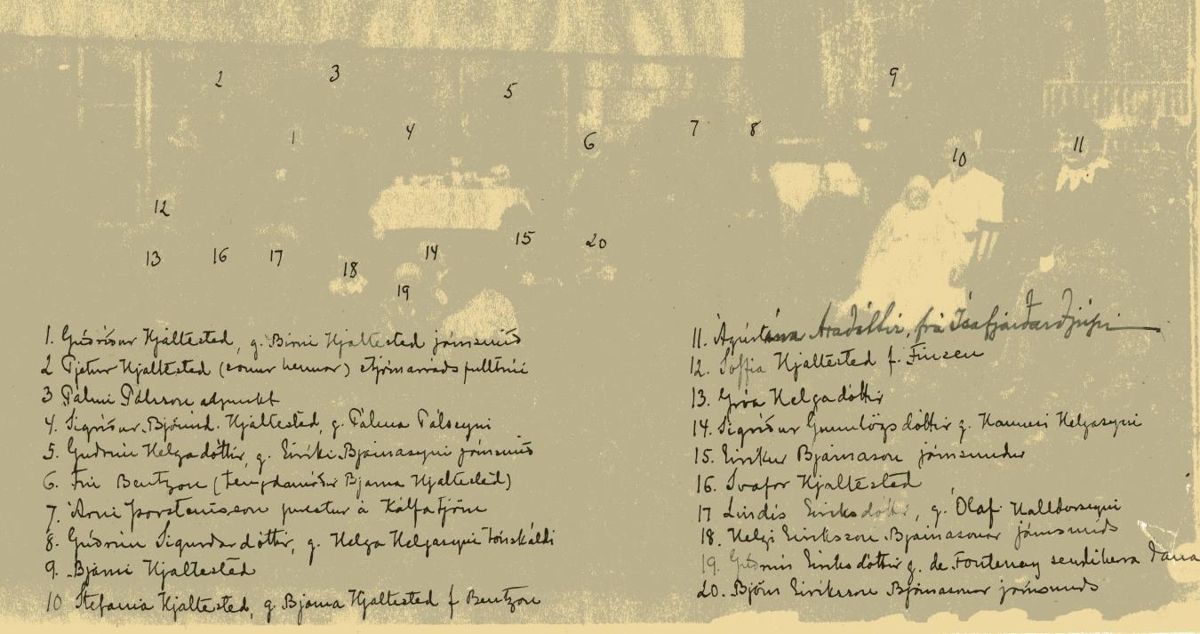 2
3
5
9
1
4
6
7
8
10
11
12
13
16
17
14
15
20
18
19
1. Guðríður Hjaltested, g. Birni Hjaltested járnsmið
2 Pjetur Hjaltested (sonur hennar) stjórnarráðsfulltrúi
3 Pálmi Pálsson adjunkt
4. Sigríður Björnsd. Hjaltested, g. Pálma Pálssyni
5. Guðrún Helgadóttir, g. Eiríki Bjarnasyni járnsmið
6. Frú Bentzon (tengdamóðir Bjarna Hjaltested)
7. Árni Þorsteinsson prestur á Kálfatjörn
8. Guðrún Sigurðardóttir, g. Helga Helgasyni tónskáldi
9. Bjarni Hjaltested
10 Stefanía Hjaltested, g. Bjarna Hjaltested f Bentzon
11. Ágústína Aradóttir, frá Ísafjarðardjúpi
12. Soffía Hjaltested f. Finsen
13. Gróa Helgadóttir
14. Sigríður Gunnlögsdóttir g. Hannesi Helgasyni
15. Eiríkur Bjarnason járnsmiður
16. Svafar Hjaltested
17 Lindís Eiríksdóttir, g. Ólafi Halldórssyni
18. Helgi Eiríksson Bjarnasonar járnsmiðs
19. Guðrún Eiríksdóttir g. de Fontenay sendiherra Dana
20. Björn Eiríksson Bjarnasonar járnsmiðs